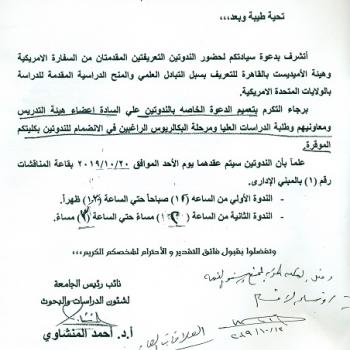 تحية طيبة وبعد،،،
أتشرف بدعوة سيادتكم لحضور الندوتين التعريفتين المقدمتان من السفارة الامريكية
وهيئة الأميديست بالقاهرة للتعريف بسبل التبادل العلمي والمنح الدراسية المقدمة للدراسة
بالولايات المتحدة الامريكية.
برجاء التكرم بتعميم الدعوة الخاصه بالندوتين علي السادة اعضاء هيئة التدريس
ومعاونيهم وطلبة الدراسات العليا ومرحلة البكالريوس الراغبين في الانضمام للندوتين بكليتكم
الموقرة.
علماً بأن الندوتين سيتم عقدهما يوم الأحد الموافق ٢٠١٩/١٠/٢٠ بقاعة المناقشات
رقم (١) بالمبني الإدارى.
- الندوة الأولي من الساعه (١٢) صباحاً حتي الساعة () ظهراً.
- الندوة الثانية من الساعة () مساءً حتي الساعة () مساءً.
وتفضلوا بقبول فائق التقدير و الأحترام لشخصكم الكريم،،،
نائب رئيس الجامعة
لشئون الدراسات والبحوث
أ.د. أحمد المنشاوي